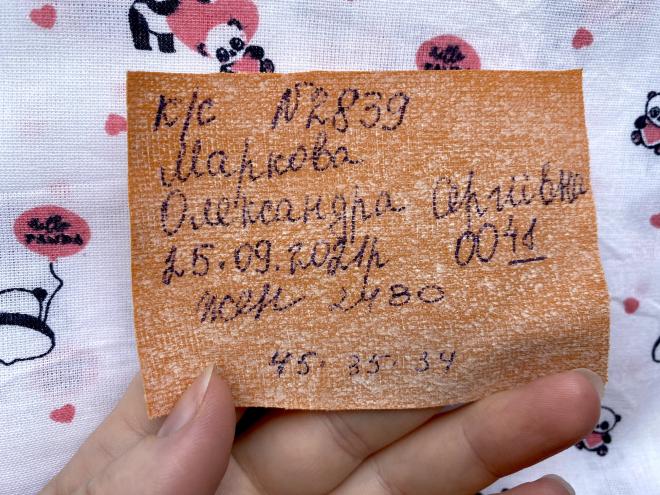 hello
PANDA
к/с №2839
Маркова
Олександра Сергіївна
25.09.2021р 00 41
жен 2480
45. 35. 34
hello
PANDA